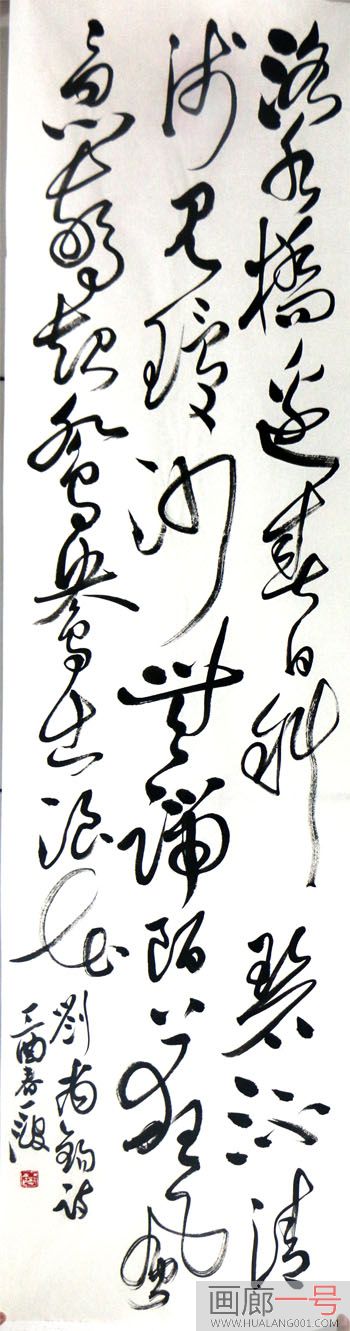 洛水橋邊春日斜碧流清
淺見瓊沙無端陌上狂風
急驚起鴛鴦出浪花
劉禹錫詩
酉春一
画廊一号
WWW.HUALANG001.COM